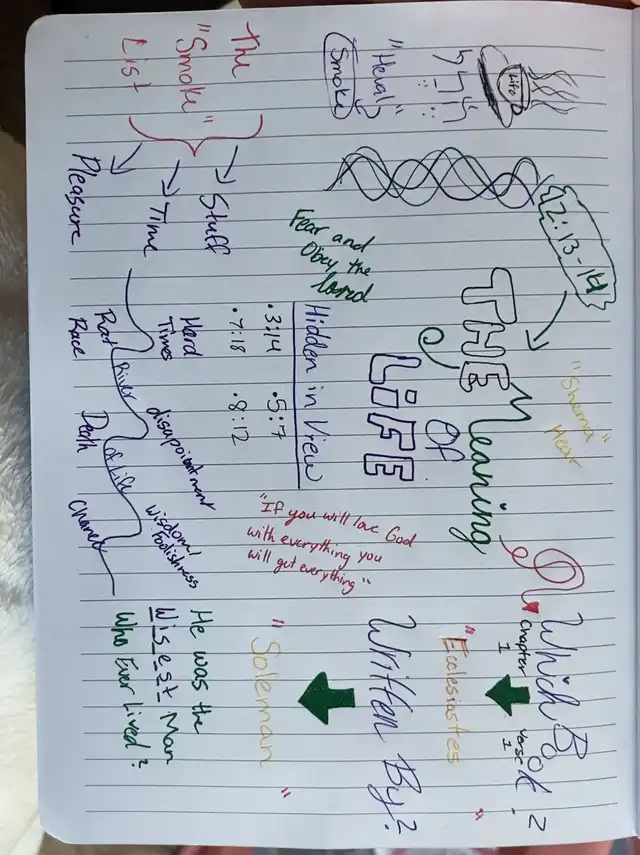 Life
"Heval"
Smoke
The
"Smoke"
List
Stuff
Time
Pleasure
12:13-14
"Shema"
Hear
THE Meaning
Of
LiFE
Fear and
Obey the
Hidden in View
•3:14 •5:7
•7:18 •8:12
"If you will love God
with everything you
will get everything"
Hard
Times
disapointment
wisdom/
foolishness
River of Life
Rat
Race
Death
Chance
Which Book?
Chapter
1
Verse
1
"Ecclesiastes"
Written By?
"Soleman"
He was the
Wisest Man
Who Ever Lived?